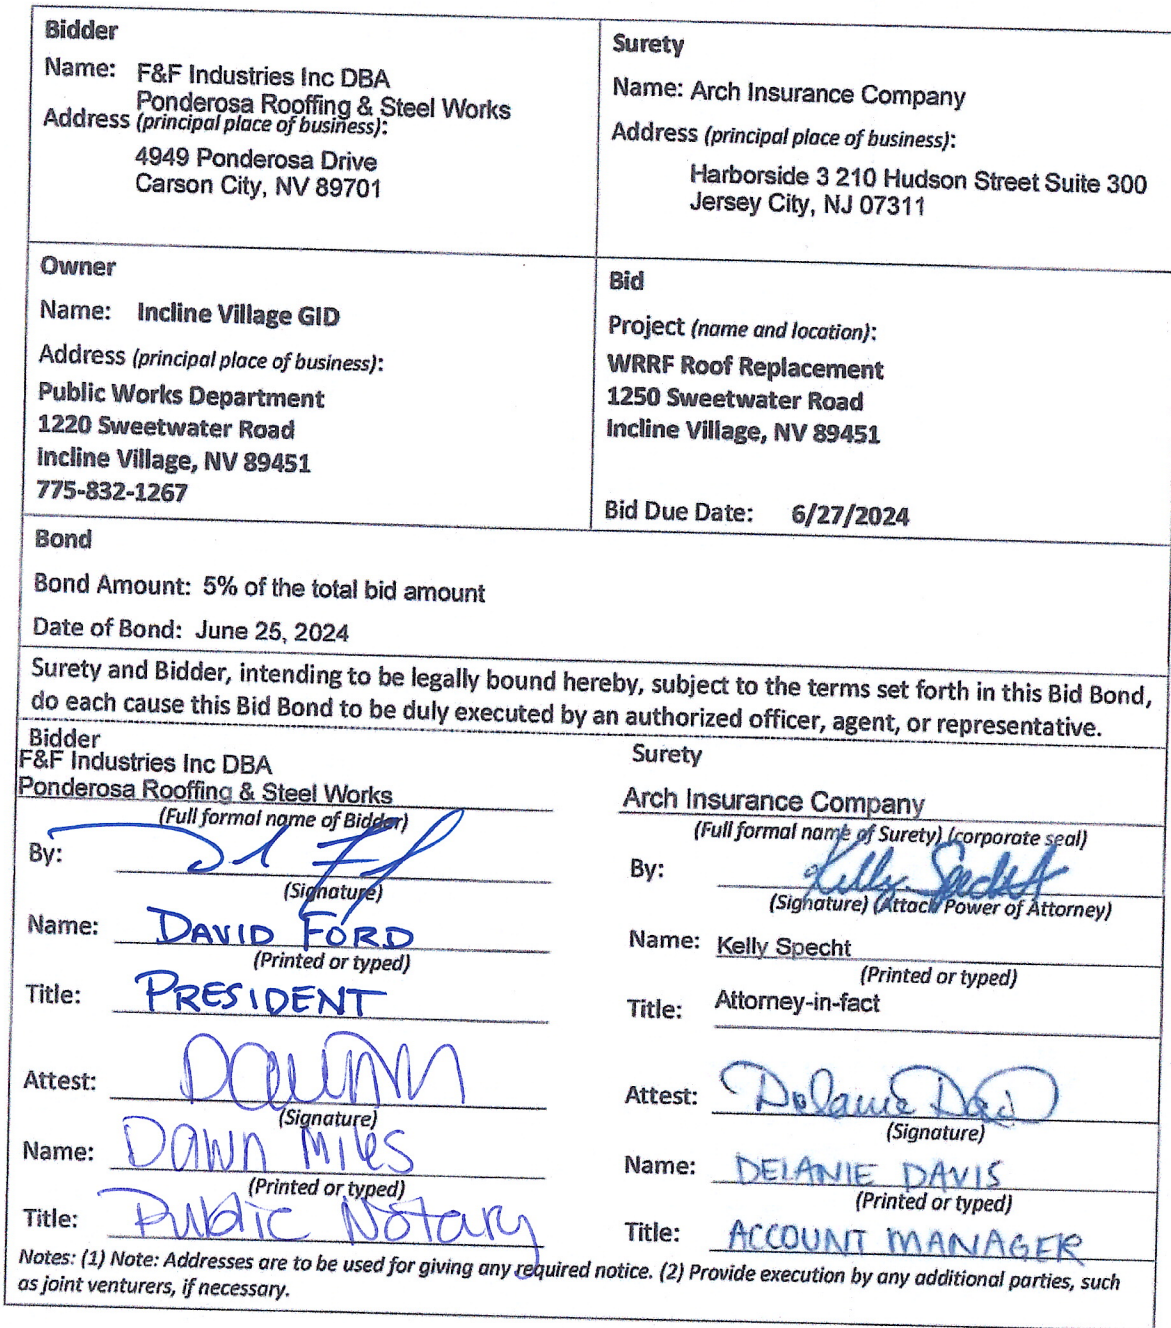 Bidder
Name: F&F Industries Inc DBA
Ponderosa Rooffing & Steel Works
Address (principal place of business):
4949 Ponderosa Drive
Carson City, NV 89701
Surety
Name: Arch Insurance Company
Address (principal place of business):
Harborside 3 210 Hudson Street Suite 300
Jersey City, NJ 07311
Owner
Name: Incline Village GID
Address (principal place of business):
Public Works Department
1220 Sweetwater Road
Incline Village, NV 89451
775-832-1267
Bid
Project (name and location):
WRRF Roof Replacement
1250 Sweetwater Road
Incline Village, NV 89451
Bid Due Date: 6/27/2024
Bond
Bond Amount: 5% of the total bid amount
Date of Bond: June 25, 2024
Surety and Bidder, intending to be legally bound hereby, subject to the terms set forth in this Bid Bond,
do each cause this Bid Bond to be duly executed by an authorized officer, agent, or representative.
Bidder
F&F Industries Inc DBA
Ponderosa Rooffing & Steel Works
(Full formal name of Bidder)
By:
(Signature)
Name: DAVID FORD
(Printed or typed)
Title: PRESIDENT
Attest:
(Signature)
Name: Dawn Miles
(Printed or typed)
Title: Public Notary
Surety
Arch Insurance Company
(Full formal name of Surety) (corporate seal)
By: Kelly Specht
(Signature) (Attach Power of Attorney)
Name: Kelly Specht
(Printed or typed)
Title: Attorney-in-fact
Attest: Delanie Davis
(Signature)
Name: DELANIE DAVIS
(Printed or typed)
Title: ACCOUNT MANAGER
Notes: (1) Note: Addresses are to be used for giving any required notice. (2) Provide execution by any additional parties, such
as joint venturers, if necessary.